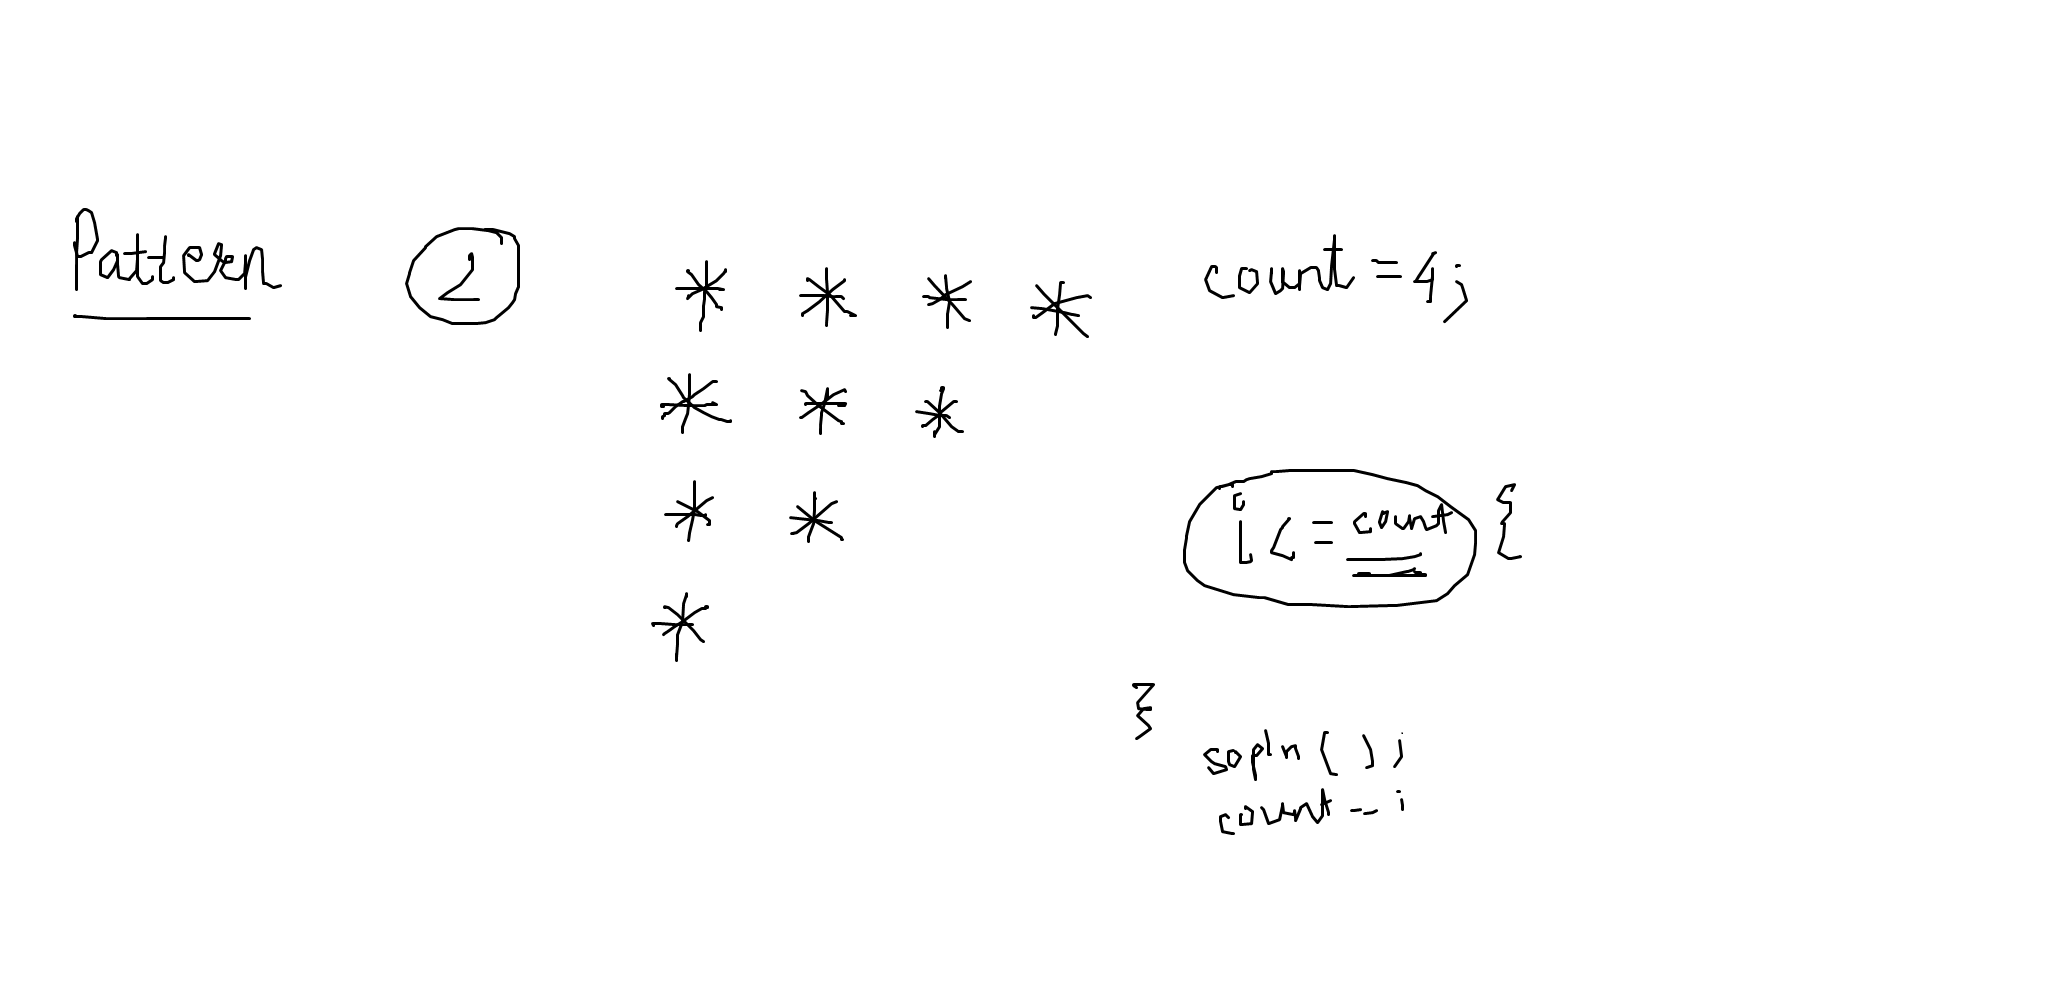 Pattern 2
* * * * count = 4;
* * *
* *
i <= count {
*
}
sopln ( );
count --;